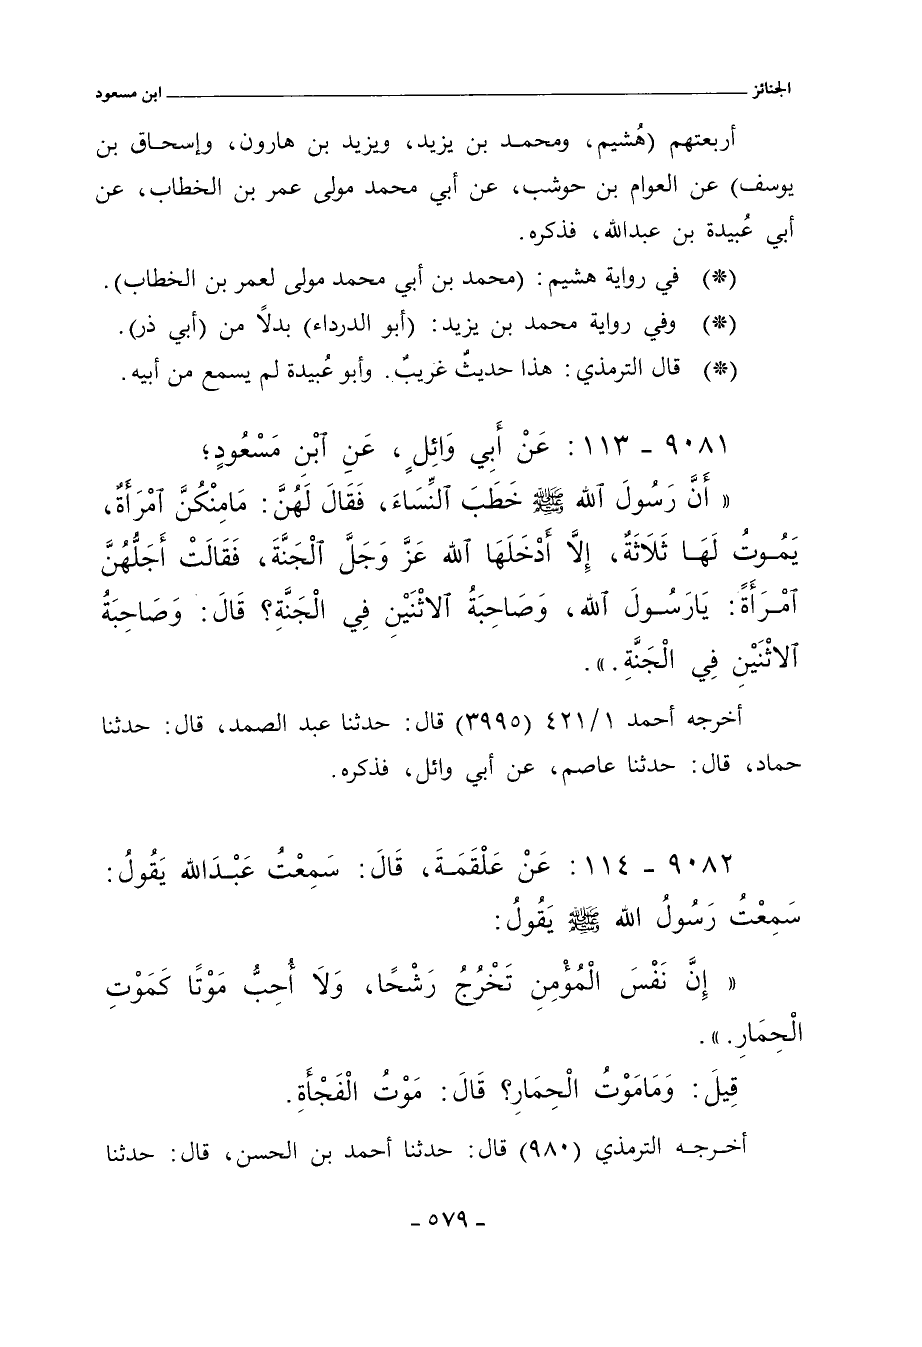 الجنائز ـــــ ابن مسعود
أربعتهم (هُشيم، ومحمـد بن يزيد، ويزيد بن هارون، وإسحـاق بن
يوسف) عن العوام بن حوشب، عن أبي محمد مولى عمر بن الخطاب، عن
أبي عُبيدة بن عبدالله، فذكره.
(*) في رواية هشيم: (محمد بن أبي محمد مولى لعمر بن الخطاب).
(*) وفي رواية محمد بن يزيد: (أبو الدرداء) بدلاً من (أبي ذر).
(*) قال الترمذي: هذا حديثٌ غريبٌ. وأبو عُبيدة لم يسمع من أبيه.
٩٠٨١ - ١١٣: عَنْ أَبِي وَائِلٍ، عَنِ ٱبْنِ مَسْعُودٍ؛
« أَنَّ رَسُولَ ٱلله ﷺ خَطَبَ ٱلنِّسَاءَ، فَقَالَ لَهُنَّ: مَامِنْكُنَّ ٱمْرَأَةٌ،
يَمُـوتُ لَهَـا ثَلَاثَةٌ، إِلَّا أَدْخَلَهَا ٱلله عَزَّ وَجَلَّ ٱلْجَنَّةَ، فَقَالَتْ أَجَلُّهُنَّ
ٱمْـرَأَةً: يَارَسُـولَ ٱلله، وَصَاحِبَةُ ٱلاثْنَيْنِ فِي الْجَنَّةِ؟ قَالَ: وَصَاحِبَةُ
ٱلاثْنَيْنِ فِي الْجَنَّةِ.».
أخرجه أحمد ٤٢١/١ (٣٩٩٥) قال: حدثنا عبد الصمد، قال: حدثنا
حماد، قال: حدثنا عاصم، عن أبي وائل، فذكره.
٩٠٨٢ - ١١٤: عَنْ عَلْقَمَـةَ، قَالَ: سَمِعْتُ عَبْـدَالله يَقُولُ:
سَمِعْتُ رَسُولُ الله ﷺ يَقُولُ:
« إِنَّ نَفْسَ الْمُؤْمِنِ تَخْرُجُ رَشْحًا، وَلَا أُحِبُّ مَوْتًا كَمَوْتِ
الْحِمَارِ.».
قِيلَ: وَمَامَوْتُ الْحِمَارِ؟ قَالَ: مَوْتُ الْفَجْأَةِ.
أخـرجـه الترمذي (٩٨٠) قال: حدثنا أحمد بن الحسن، قال: حدثنا
- ٥٧٩ -